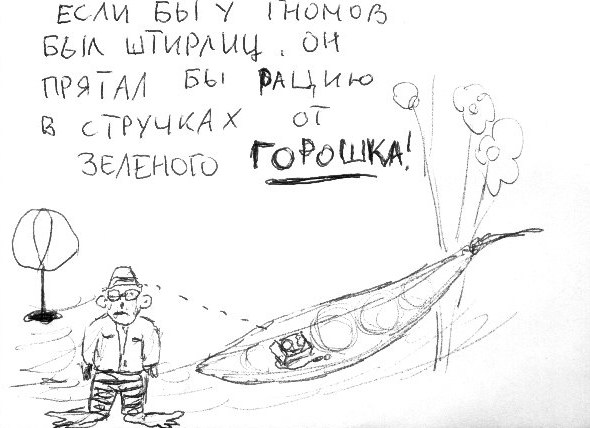 ЕСЛИ БЫ У ГНОМОВ
БЫЛ ШТИРЛИЦ, ОН
ПРЯТАЛ БЫ РАЦИЮ
В СТРУЧКАХ ОТ
ЗЕЛЕНОГО ГОРОШКА!